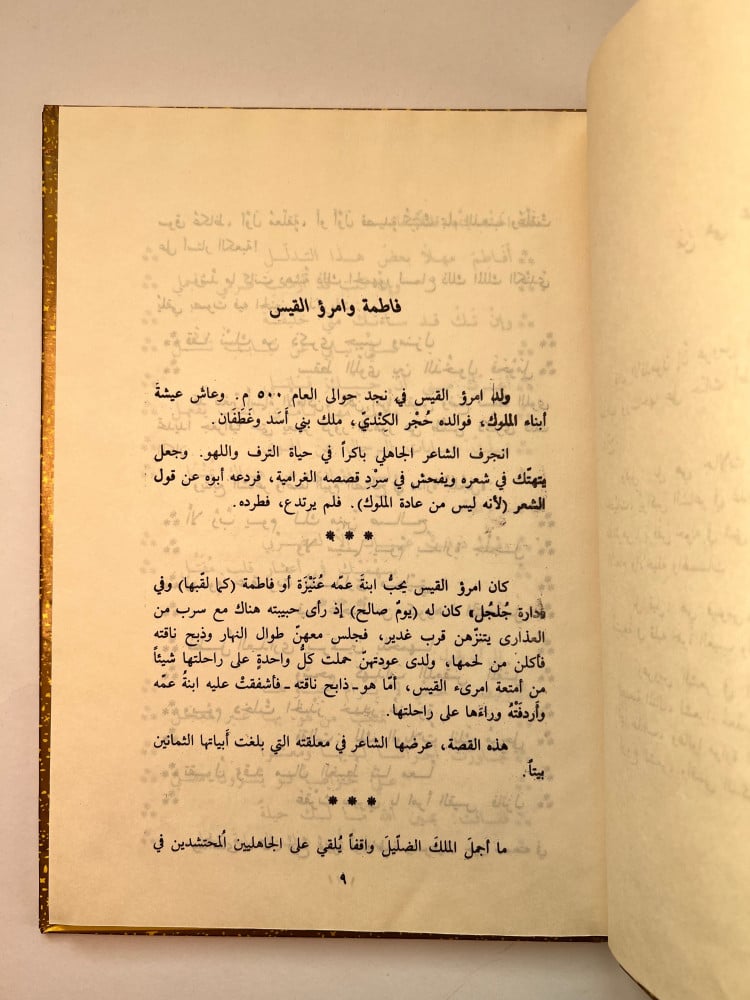 فاطمة وامرؤ القيس
ولد امرؤ القيس في نجد حوالى العام ٥٠٠ م. وعاش عيشةَ
أبناء الملوك، فوالده حُجْر الكِنْديّ، ملك بني أَسَد وغَطَفَان.
انجرف الشاعر الجاهلي باكراً في حياة الترف واللهو. وجعل
يتهتّك في شعره ويفحش في سرْدِ قصصه الغرامية، فردعه أبوه عن قول
الشعر (لأنه ليس من عادة الملوك). فلم يرتدع، فطرده.
* * *
كان امرؤ القيس يحبُّ ابنةَ عمّه عُنَيْزَة أو فاطمة (كما لقّبها) وفي
«دارة جُلجُل» كان له (يومٌ صالح) إذ رأى حبيبته هناك مع سرب من
العذارى يتنزّهن قرب غدير، فجلس معهنّ طوال النهار وذبح ناقته
فأكلن من لحمها، ولدى عودتهنّ حملت كلُّ واحدةٍ على راحلتها شيئاً
من أمتعة امرىء القيس، أمّا هو ـ ذابح ناقته ـ فأشفقتْ عليه ابنةُ عمّه
وأَردفَتْهُ وراءَها على راحلتها.
هذه القصة، عرضها الشاعر في معلقته التي بلغت أَبياتها الثمانين
بيتاً.
* * *
ما أجملَ الملكَ الضلّيلَ واقفاً يُلقي على الجاهليين اُلمحتشدين في
٩